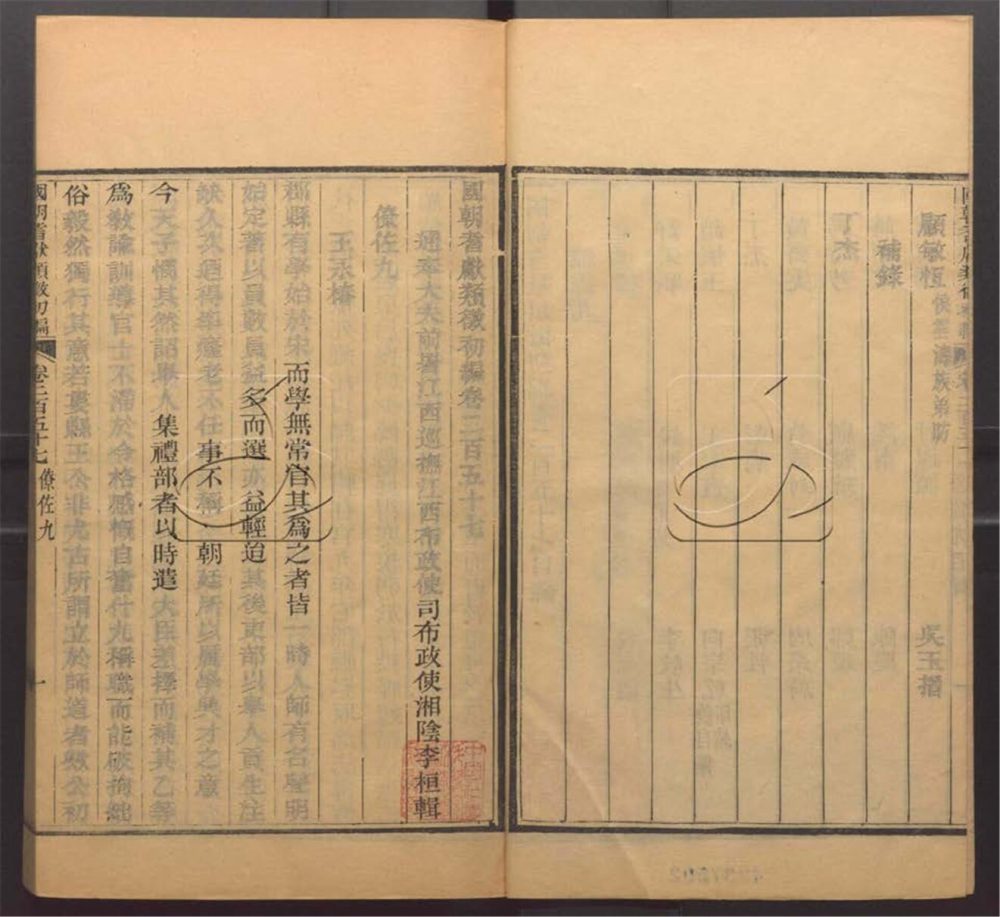 顧敏恆 侯雲濤 族弟昉
吳玉搢
補錄
丁杰
國朝耆獻類徵初編卷二百五十七
通奉大夫前署江西巡撫江西布政使司布政使湘陰李桓輯
僚佐九
王永椿
郡縣有學始於宋而學無常官其為之者皆一時人師有名聲明
始定著以員數員益多而選亦益輕迨其後吏部以舉人貢生注
缺久次迺得率癃老不任事不稱朝廷所以厲學興才之意
今天子憫其然詔舉人集禮部者以時遣大臣差擇而補其乙等
為教諭訓導官士不滯於令格感慨自奮仕尤稱職而能破拘絀
俗毅然獨行其意若婁縣王公非尤古所謂立於師道者歟公初
國朝耆獻類徵初編 卷二百五十七 僚佐九 一